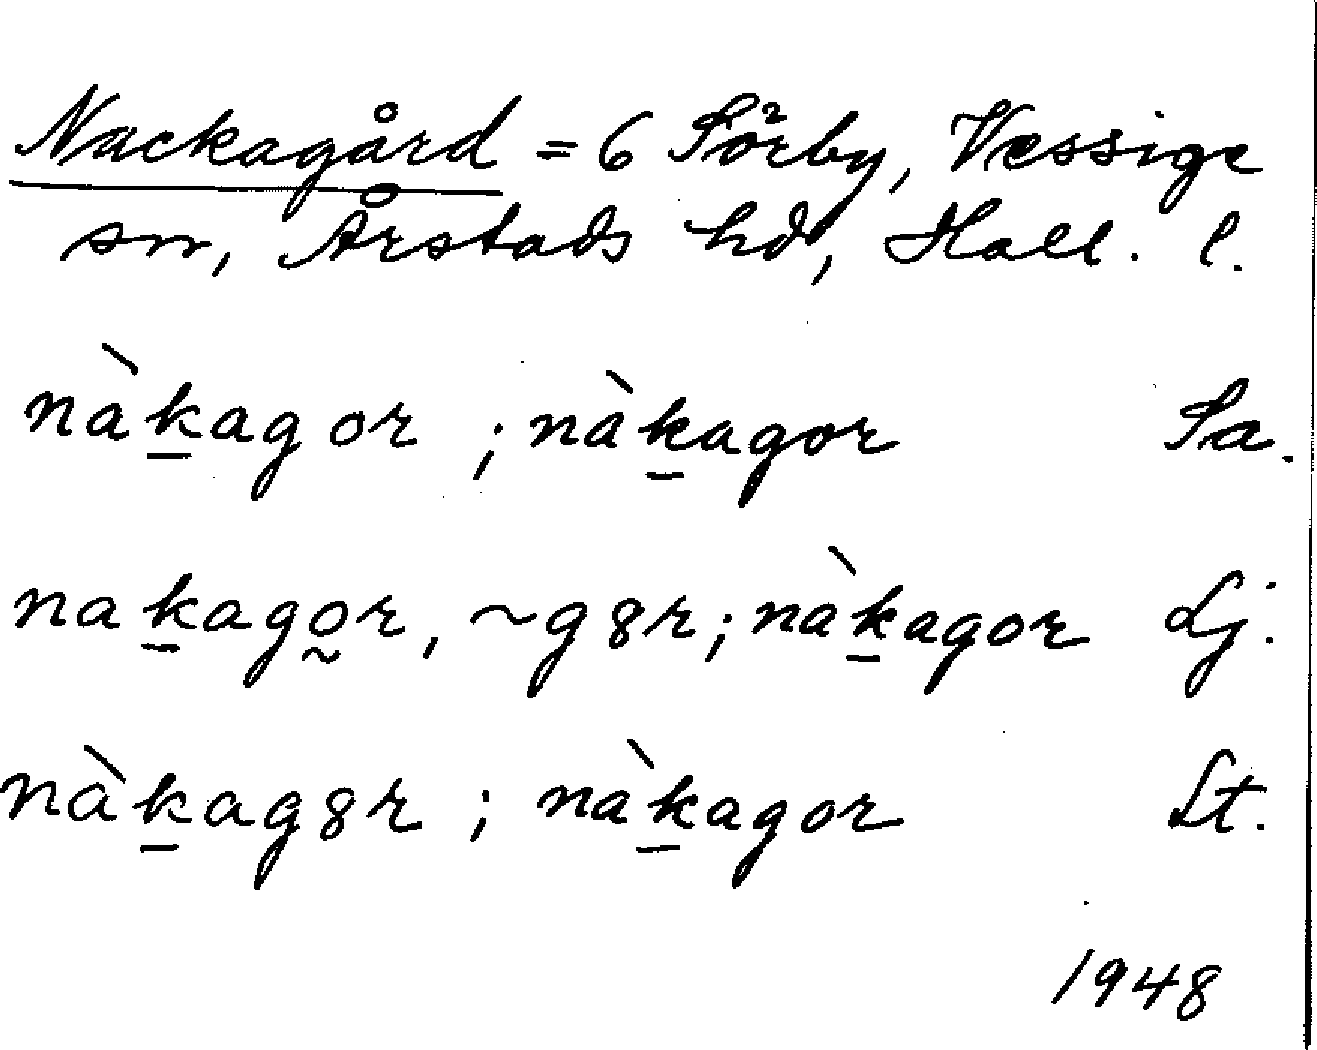 Nackagård = 6 Sörby, Vessige
sn, Årstads hd, Hall. l.
nàk̲agor ; nàk̲agor Sa.
nak̲ago̰r, ~g8r; nàk̲agor Lj.
nàk̲ag8r ; nàk̲agor Lt.
1948